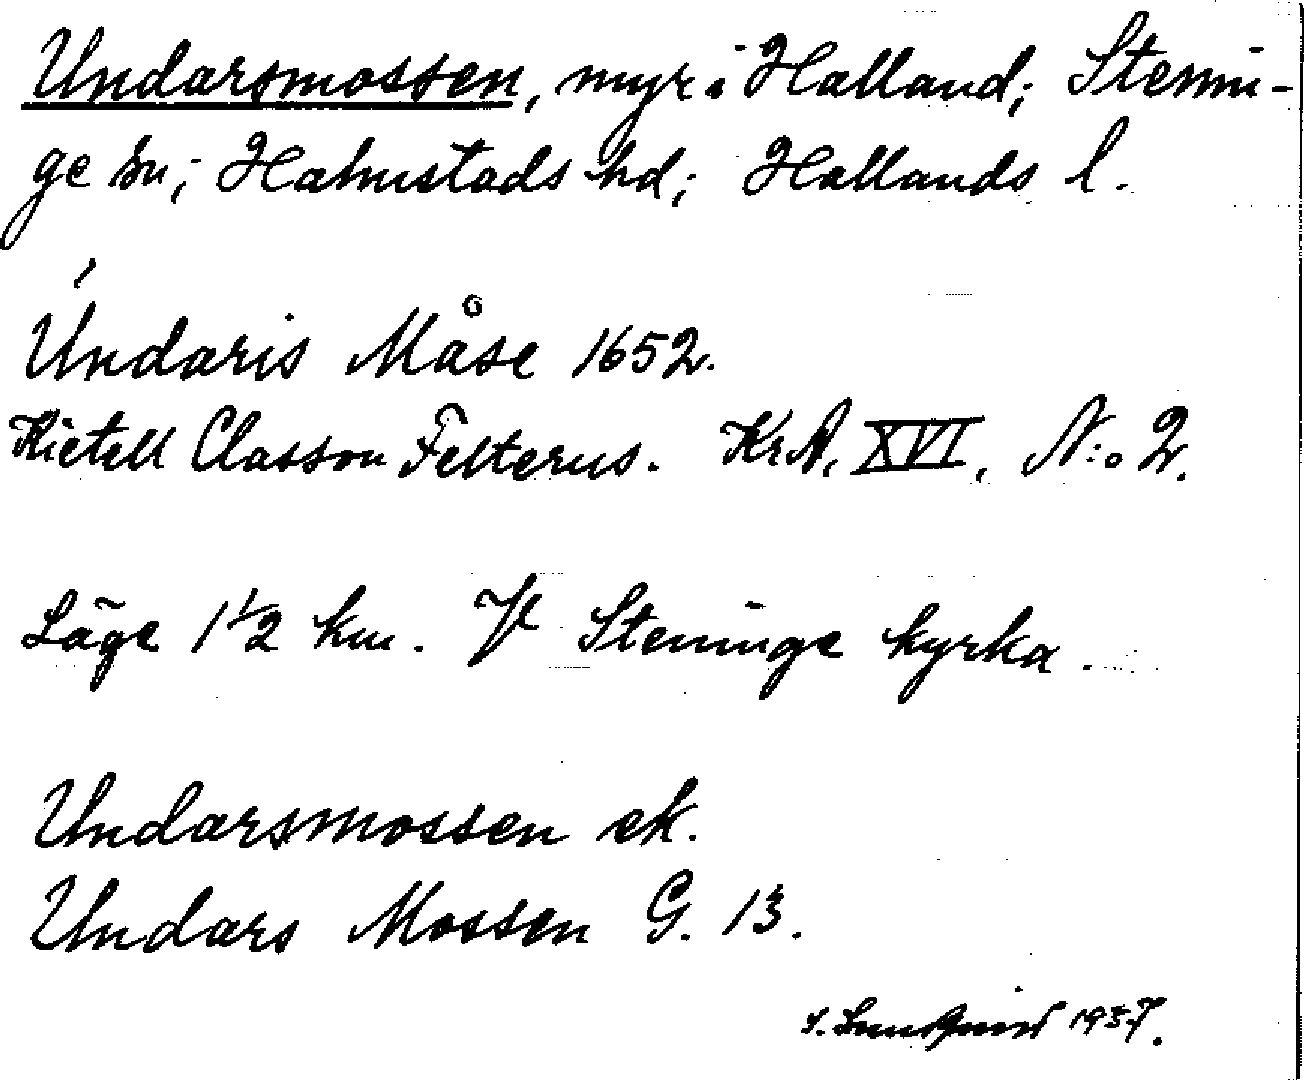 Undarsmossen, myr i Halland; Stenin-
ge sn; Halmstads hd; Hallands l.
Úndaris Måse 1652.
Kietell Classon Felterus. KrA, XVI, N:o 2.
Läge 1 1/2 km. V Steninge kyrka.
Undarsmossen ek.
Undars Mossen G. 13.
S. Lundqvist 1937.